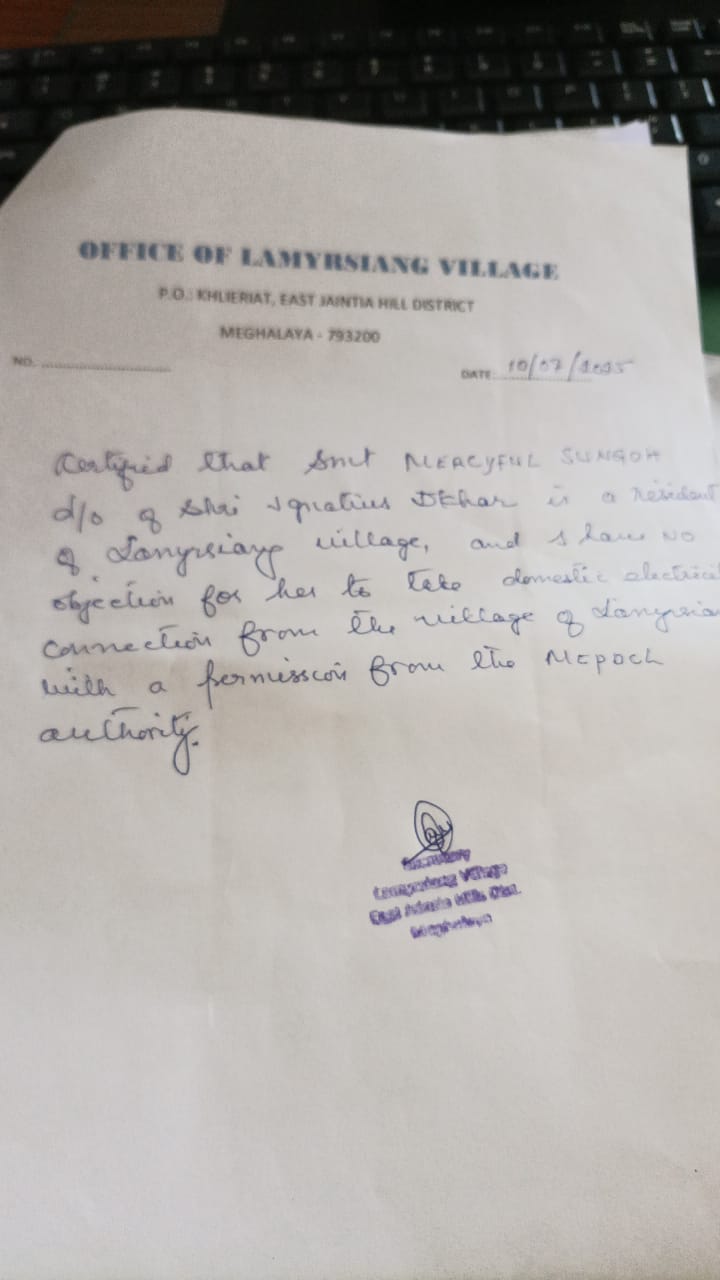 OFFICE OF LAMYRSIANG VILLAGE
P.O.: KHLIERIAT, EAST JAINTIA HILL DISTRICT
MEGHALAYA - 793200
NO. ....................
DATE: 10/07/2025
Certified that Smt MERCYFUL SUNGOH
d/o of Shri Ignatius Dkhar is a resident
of Lamyrsiang village, and I have NO
objection for her to take domestic electrical
connection from the village of Lamyrsian
with a permission from the MEPDCL
authority.
Secretary
Lamyrsiang Village
East Jaintia Hills Dist.
Meghalaya